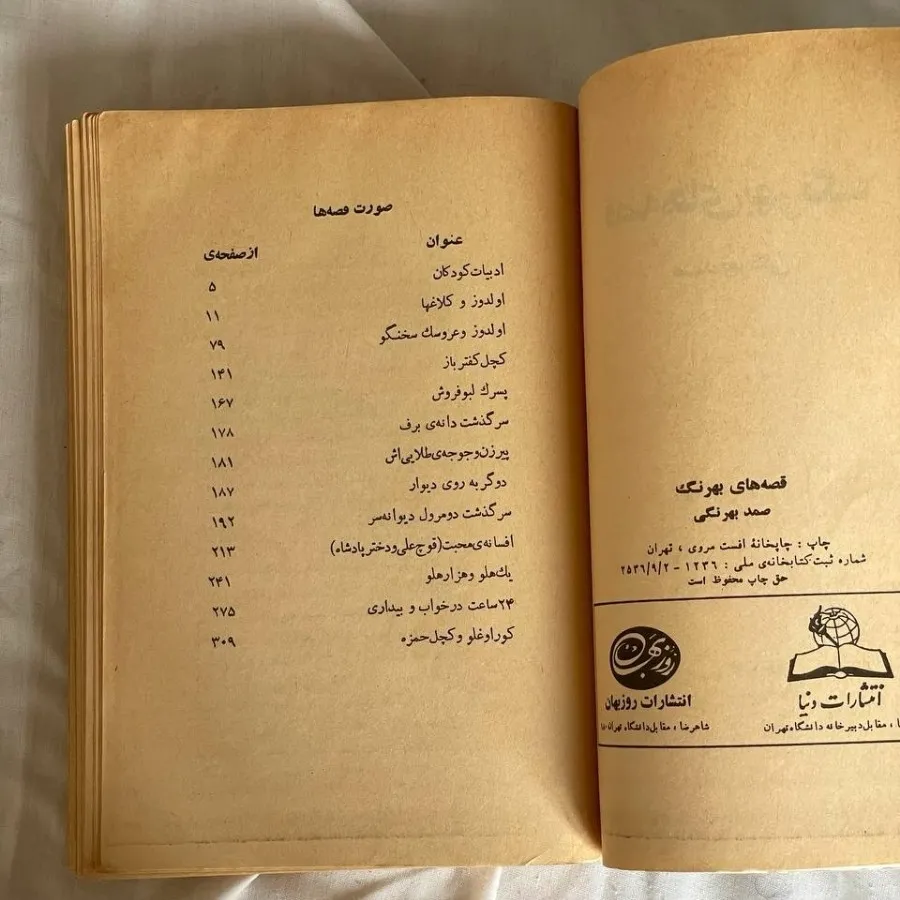 قصه‌های بهرنگ
صمد بهرنگی
چاپ : چاپخانهٔ افست مروی ، تهران
شماره ثبت کتابخانه‌ی ملی : ۱۲۳۶ - ۲۵۳۶/۹/۲
حق چاپ محفوظ است
انتشارات دنیا
، مقابل دبیرخانه دانشگاه تهران
روزبهان
انتشارات روزبهان
شاهرضا ، مقابل دانشگاه تهران
صورت قصه‌ها
عنوان از صفحه‌ی
ادبیات کودکان ۵
اولدوز و کلاغها ۱۱
اولدوز وعروسك سخنگو ۷۹
کچل کفتر باز ۱۴۱
پسرك لبوفروش ۱۶۷
سرگذشت دانه‌ی برف ۱۷۸
پیرزن و جوجه‌ی طلایی‌اش ۱۸۱
دوگربه روی دیوار ۱۸۷
سرگذشت دومرول دیوانه‌سر ۱۹۲
افسانه‌ی محبت (قوچ علی و دختر پادشاه) ۲۱۳
يك هلو وهزار هلو ۲۴۱
۲۴ساعت درخواب و بیداری ۲۷۵
کوراوغلو و کچل حمزه ۳۰۹